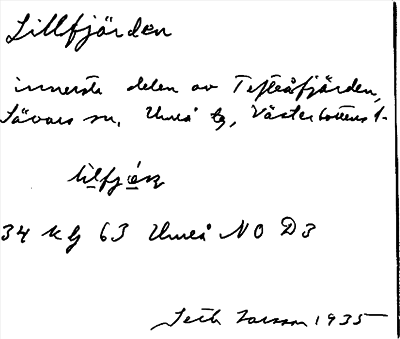 Lillfjärden
innersta delen av Tefteåfjärden,
Sävars sn. Umeå tg, Västerbottens l.
lilfjä̱ɳ
34 kg 63 Umeå NO D3
Seth Larsson 1935